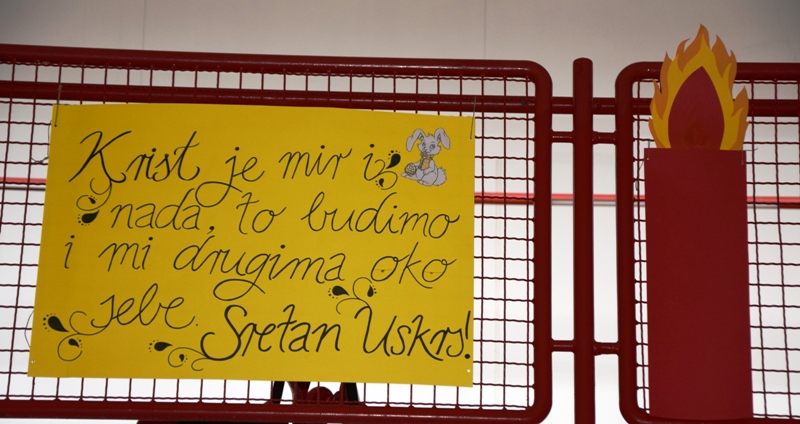 Krist je mir i
nada, to budimo
i mi drugima oko
sebe. Sretan Uskrs!